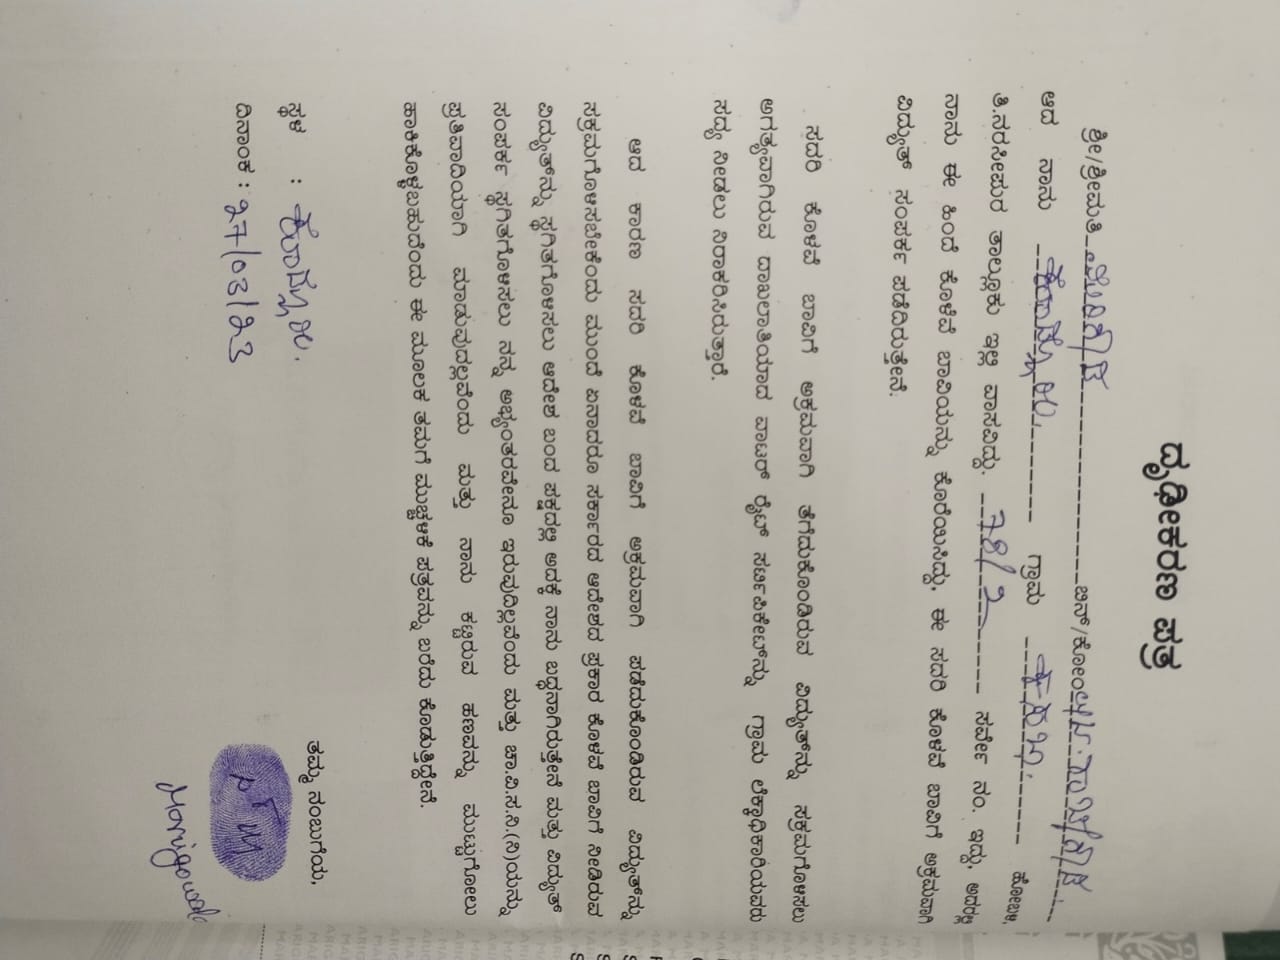 ದೃಢೀಕರಣ ಪತ್ರ
ಶ್ರೀ/ಶ್ರೀಮತಿ ಬಿನ್/ಕೋಂ
ಆದ ನಾನು ಗ್ರಾಮ ಕಸಬಾ. ಹೋಬಳಿ,
ತಿ.ನರಸೀಪುರ ತಾಲ್ಲೂಕು ಇಲ್ಲಿ ವಾಸವಿದ್ದು, 78/2 ಸರ್ವೇ ನಂ. ಇದ್ದು, ಅದರಲ್ಲಿ
ನಾನು ಈ ಹಿಂದೆ ಕೊಳವೆ ಬಾವಿಯನ್ನು ಕೊರೆಯಿಸಿದ್ದು, ಈ ಸದರಿ ಕೊಳವೆ ಬಾವಿಗೆ ಅಕ್ರಮವಾಗಿ
ವಿದ್ಯುತ್ ಸಂಪರ್ಕ ಪಡೆದಿರುತ್ತೇನೆ.
ಸದರಿ ಕೊಳವೆ ಬಾವಿಗೆ ಅಕ್ರಮವಾಗಿ ತೆಗೆದುಕೊಂಡಿರುವ ವಿದ್ಯುತ್‌ನ್ನು ಸಕ್ರಮಗೊಳಿಸಲು
ಅಗತ್ಯವಾಗಿರುವ ದಾಖಲಾತಿಯಾದ ವಾಟರ್ ರೈಟ್ ಸರ್ಟಿಫಿಕೇಟ್‌ನ್ನು ಗ್ರಾಮ ಲೆಕ್ಕಾಧಿಕಾರಿಯವರು
ಸದ್ಯ ನೀಡಲು ನಿರಾಕರಿಸಿರುತ್ತಾರೆ.
ಆದ ಕಾರಣ ಸದರಿ ಕೊಳವೆ ಬಾವಿಗೆ ಅಕ್ರಮವಾಗಿ ಪಡೆದುಕೊಂಡಿರುವ ವಿದ್ಯುತ್‌ನ್ನು
ಸಕ್ರಮಗೊಳಿಸಬೇಕೆಂದು ಮುಂದೆ ಏನಾದರೂ ಸರ್ಕಾರದ ಆದೇಶದ ಪ್ರಕಾರ ಕೊಳವೆ ಬಾವಿಗೆ ನೀಡಿರುವ
ವಿದ್ಯುತ್‌ನ್ನು ಸ್ಥಗಿತಗೊಳಿಸಲು ಆದೇಶ ಬಂದ ಪಕ್ಷದಲ್ಲಿ ಅದಕ್ಕೆ ನಾನು ಬದ್ಧನಾಗಿರುತ್ತೇನೆ ಮತ್ತು ವಿದ್ಯುತ್
ಸಂಪರ್ಕ ಸ್ಥಗಿತಗೊಳಿಸಲು ನನ್ನ ಅಭ್ಯಂತರವೇನೂ ಇರುವುದಿಲ್ಲವೆಂದು ಮತ್ತು ಚಾ.ವಿ.ಸ.ನಿ.(ನಿ)ಯನ್ನು
ಪ್ರತಿವಾದಿಯಾಗಿ ಮಾಡುವುದಿಲ್ಲವೆಂದು ಮತ್ತು ನಾನು ಕಟ್ಟಿರುವ ಹಣವನ್ನು ಮುಟ್ಟುಗೋಲು
ಹಾಕಿಕೊಳ್ಳಬಹುದೆಂದು ಈ ಮೂಲಕ ತಮಗೆ ಮುಚ್ಚಳಿಕೆ ಪತ್ರವನ್ನು ಬರೆದು ಕೊಡುತ್ತಿದ್ದೇನೆ.
ತಮ್ಮ ನಂಬುಗೆಯ,
ಸ್ಥಳ :
ದಿನಾಂಕ : 27/03/23